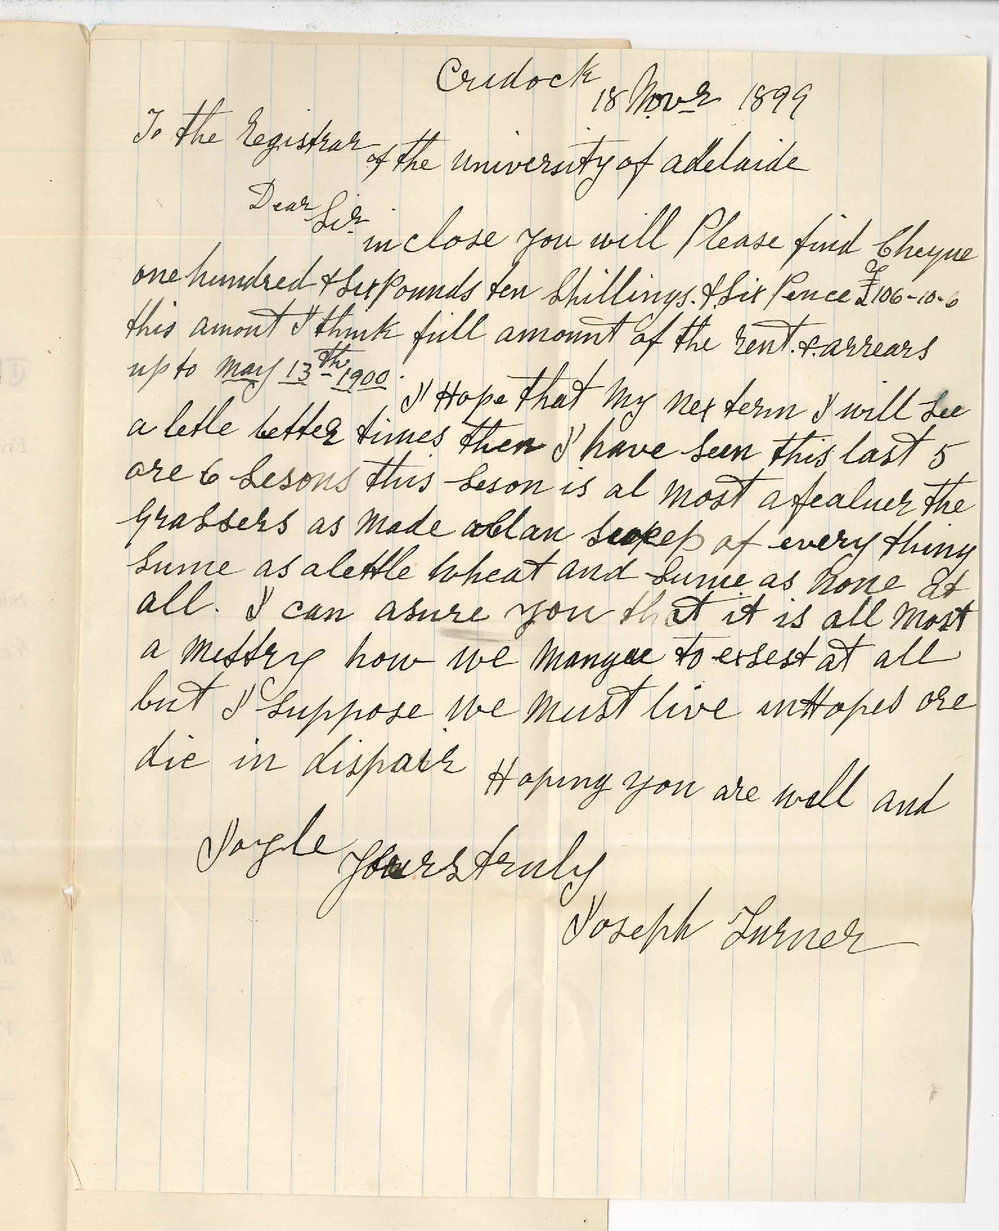 Cridock
18 Novr 1899
To the Registrar
of the university of adelaide
Dear Sir
inclose you will Please find Cheque
one hundred & Six Pounds ten Shillings. & Six Pence £106-10-6
this amont I think full amount of the rent. & arrears
up to may 13th 1900.
I Hope that my nex term I will See
a letle better times then I have Seen this last 5
ore 6 Sesons this Seson is al most a fealuer the
Grassers as made a Clan of every thing
Sume as a lettle wheat and Sume as None at
all. I can asure you that it is all most
a mestry how we mangee to exsest at all
but I Suppose we must live in Hopes ore
die in dispair Hoping you are well and
yours truly
Joseph Turner